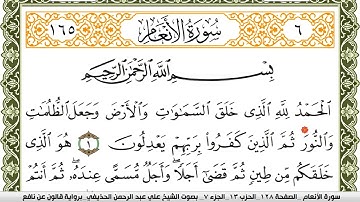 ١٦٥ سُورَةُ الأَنْعَامِ ٦
بِسْمِ اللَّهِ الرَّحْمَٰنِ الرَّحِيمِ
الْحَمْدُ لِلَّهِ الَّذِي خَلَقَ السَّمَٰوَٰتِ وَالْأَرْضَ وَجَعَلَ الظُّلُمَٰتِ
وَالنُّورَ ثُمَّ الَّذِينَ كَفَرُوا بِرَبِّهِمْ يَعْدِلُونَ ١ هُوَ الَّذِي
خَلَقَكُم مِّن طِينٍ ثُمَّ قَضَىٰ أَجَلًا وَأَجَلٌ مُّسَمًّى عِندَهُ ثُمَّ أَنتُمْ
سورة الأنعام الصفحة ١٢٨ الحزب ١٣ الجزء ٧ بصوت الشيخ علي عبد الرحمن الحذيفي برواية قالون عن نافع